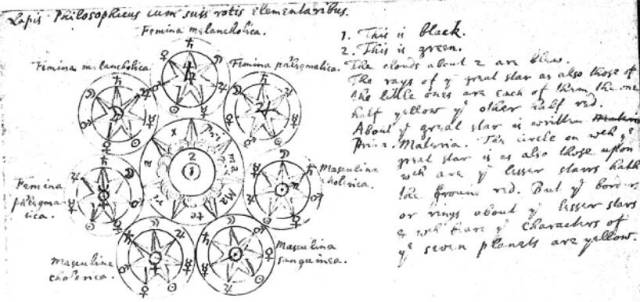 Lapis Philosophicus cum suis rotis elementaribus.
Femina melancholica.
Femina melancholica.
Femina phlegmatica.
Femina phlegmatica.
Masculina cholerica.
Masculina cholerica.
Masculina sanguinea.
1. This is black.
2. This is green.
The clouds about 2 are blew.
The rays of yͤ great star as also those of
the little ones are each of them the one
half yellow yͤ other half red.
About yͤ great star is written
Prim. Materia. The circle on wch yͤ
great star is as also those upon
wch are yͤ lesser stars hath
the ground red. But yͤ borders
or rings about yͤ lesser stars
& wch are yͤ characters of
yͤ seven planets are yellow.